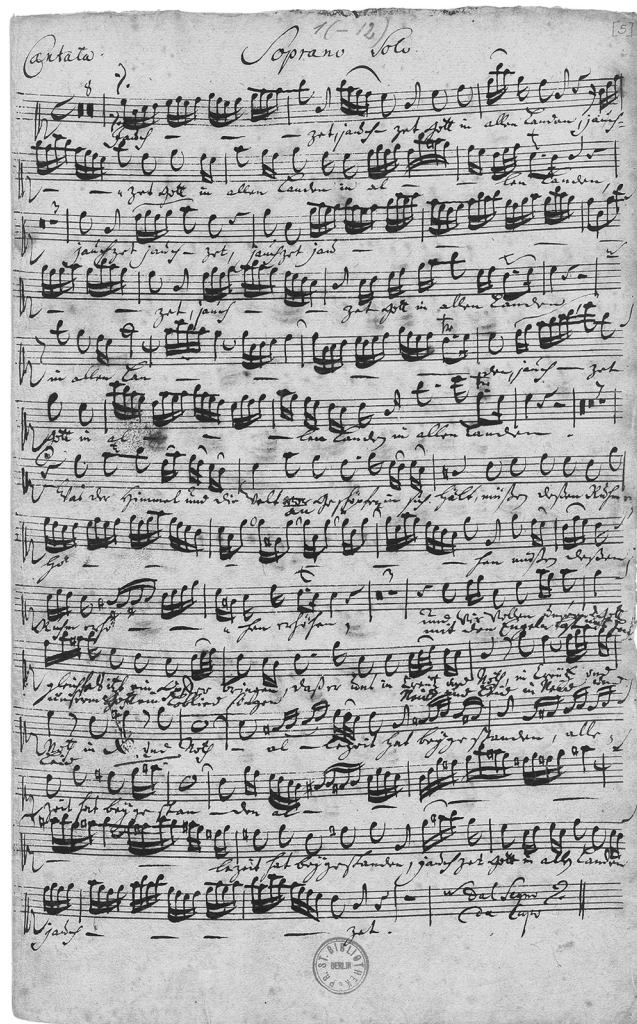 1(-12) [5]
Cantata. Soprano Solo.
8
Jauch - - - zet, jauch- zet Gott in allen Landen, jauch-
- - zet Gott in allen Landen in al - - len Landen,
2
jauchzet jauch - zet, jauchzet jau - - -
- - zet, jauch - - zet Gott in allen Landen
in allen Lan - - - - den, jauch - zet
Gott in al - - - len Landen in allen Landen.
2
Was der Himmel und die Welt an Geschöpfen in sich hält, müßen deßen Ruhm
hö - - - - hen müßen deßen
3
Ruhm erhö - - hen erhöhen, und wir wollen
mit dem Engel
gleichfalls itzt ein Opfer bringen, daß er uns in Creutz und Noth, in Creutz und
unserm
Noth in und Noth - al - lezeit hat beygestanden, alle
zeit hat beygestan - den al - - -
- - - lezeit hat beygestanden, jauchzet Gott in allen Landen
jauch - - - zet.
dal Segno
da Capo
PR. ST. BIBLIOTHEK
BERLIN